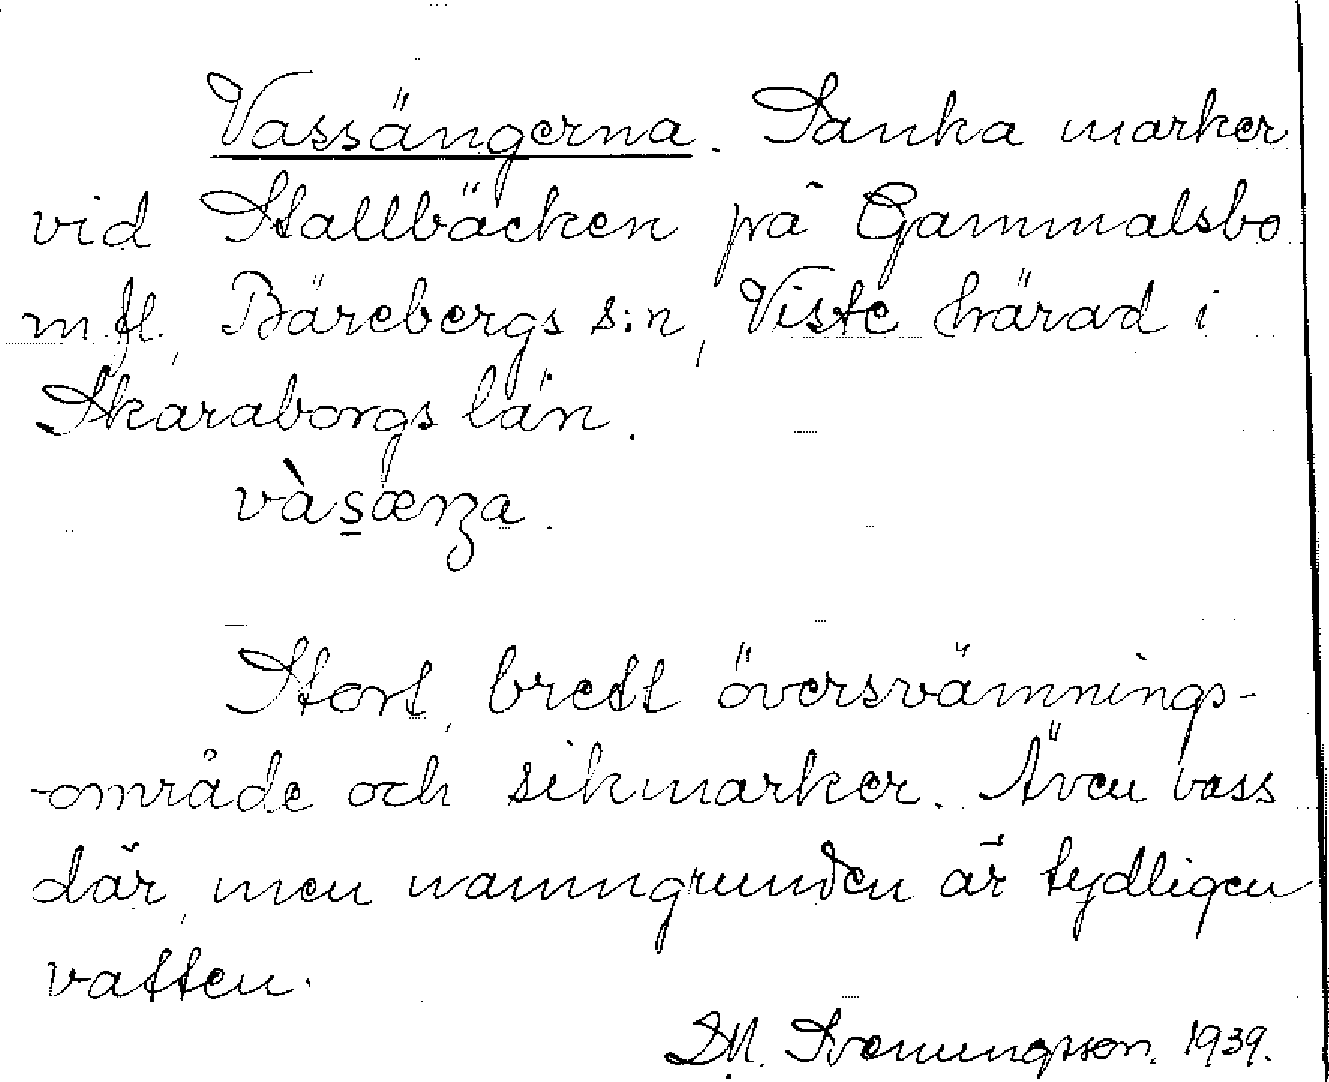 Vassängerna. Sanka marker
vid Stallbäcken på Gammalsbo
m.fl., Bärebergs s:n, Viste härad i
Skaraborgs län.
vàs̲æŋa.
Stort, brett översvämnings-
-område och sikmarker. Även vass
där, men namngrunden är tydligen
vatten.
Svenungsson. 1939.